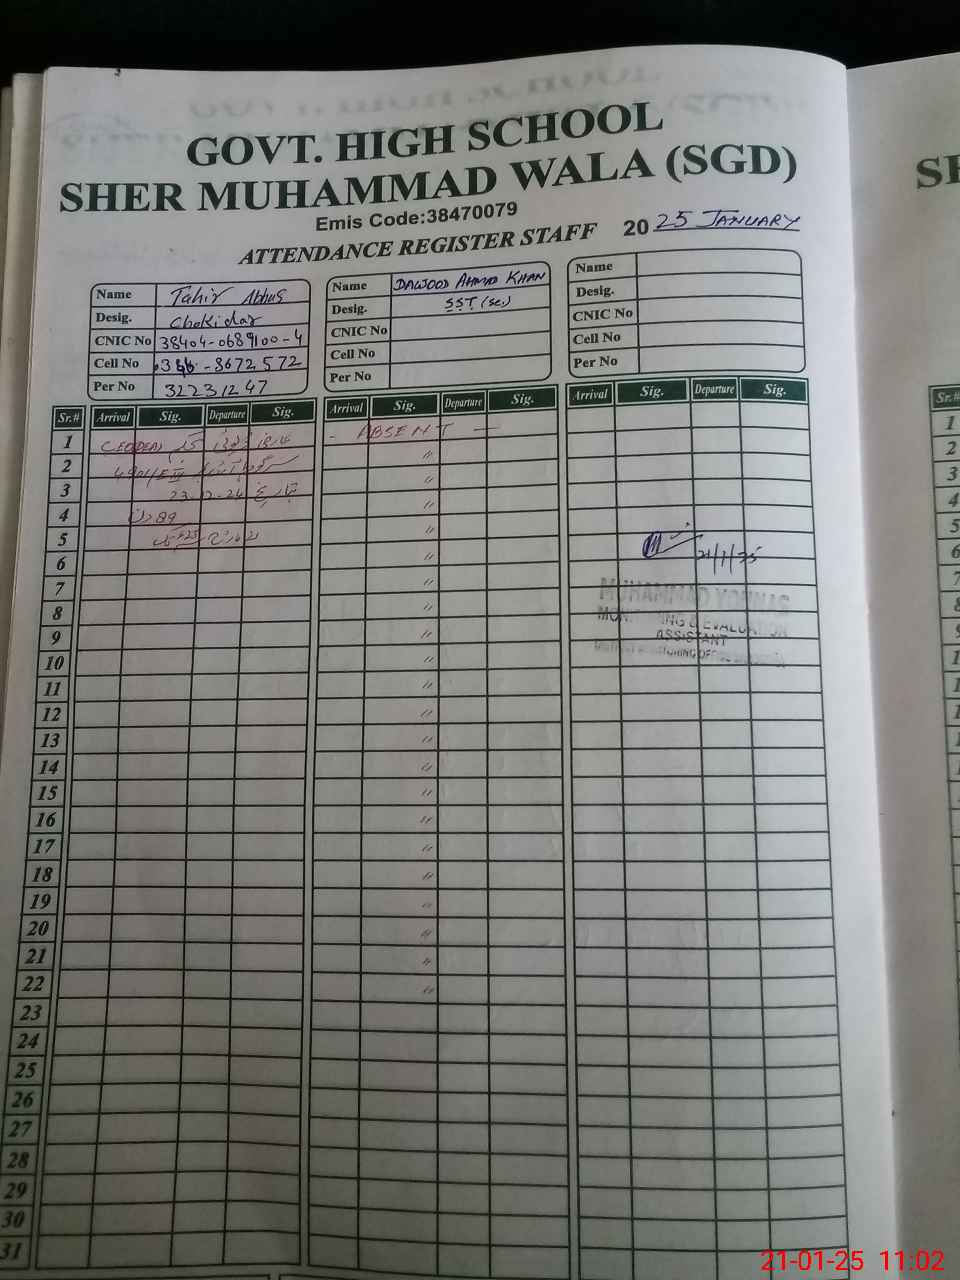 GOVT. HIGH SCHOOL
SHER MUHAMMAD WALA (SGD)
Emis Code:38470079
ATTENDANCE REGISTER STAFF 2025 JANUARY
Name Tahir Abbas
Desig. Chokidar
CNIC No 38404-0689100-4
Cell No -8672572
Per No 32231247
Name DAWOOD AHMAD KHAN
Desig. SST (Sc.)
CNIC No
Cell No
Per No
Name
Desig.
CNIC No
Cell No
Per No
Sr.# Arrival Sig. Departure Sig. Arrival Sig. Departure Sig. Arrival Sig. Departure Sig.
1 - ABSENT -
2 〃
3 23-12-24 〃
4 〃
5 〃
6 〃 21/1/25
7 〃
8 〃
9 〃
10 〃
11 〃
12 〃
13 〃
14 〃
15 〃
16 〃
17 〃
18 〃
19 〃
20 〃
21 〃
22 〃
23
24
25
26
27
28
29
30
31
MUHAMMAD
MONITORING & EVALUATION
ASSISTANT
Sr.#
1
2
3
4
5
6
7
21-01-25 11:02